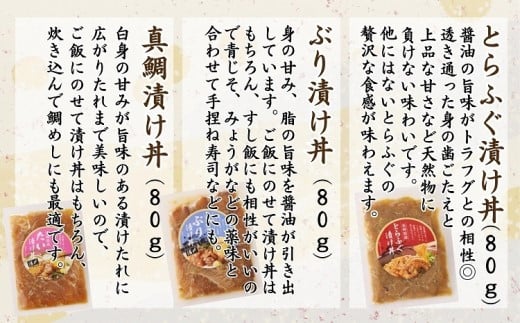 とらふぐ漬け丼(80g)
醤油の旨味がトラフグとの相性◎
透き通った身の歯ごたえと
上品な甘さなど天然物に
負けない味わいです。
他にはないとらふぐの
贅沢な食感が味わえます。
とらふぐ
漬け丼
ぶり漬け丼(80g)
身の甘み、脂の旨味を醤油が引き出
しています。ご飯にのせて漬け丼は
もちろん、すし飯にも相性がいいの
で青じそ、みょうがなどの薬味と
合わせて手捏ね寿司などにも。
ぶり
漬け丼
真鯛漬け丼(80g)
白身の甘みが旨味のある漬けたれに
広がりたれまで美味しいので、
ご飯にのせて漬け丼はもちろん、
炊き込んで鯛めしにも最適です。